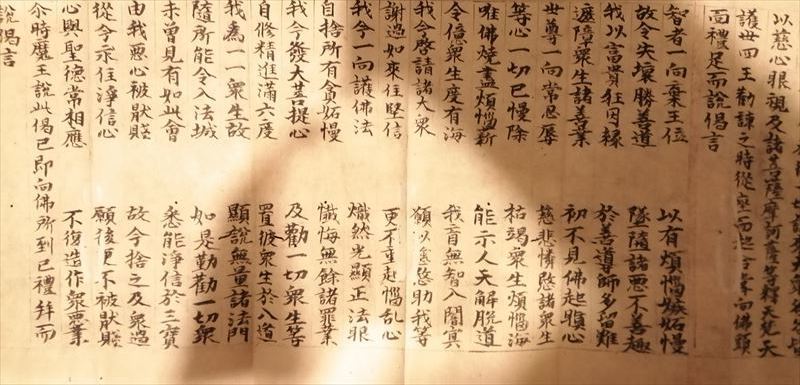 以慈心眼視及諸菩薩摩訶薩等釋天梵天
護世四王勸諫之時從座而起合掌向佛頭
面禮足而說偈言
智者一向棄王位　以有煩惱嫉妬慢
故令失壞勝善道　墜墮諸惡不善趣
我以富貴狂因緣　於善導師多留難
遮障衆生諸善業　初不見佛起瞋心
世尊一向常忍辱　慈悲憐愍諸衆生
等心一切已慢除　枯竭衆生煩惱海
唯佛燒盡煩惱薪　能示人天解脫道
令億衆生度有海　我盲無智入闇冥
我今啓請諸大衆　願以慈愍助我等
謝過如來住堅信　更不重起惱亂心
我今一向護佛法　熾然光顯正法眼
自捨所有貪妬慢　懺悔無餘諸罪業
我今發大菩提心　及勸一切衆生等
自修精進滿六度　置彼衆生於八道
我為一一衆生故　顯說無量諸法門
隨所能令入法城　如是勤勸一切衆
未曾見有如此會　悉能淨信於三寶
由我惡心被猒賤　故今捨之及衆過
從今永住淨信心　願後更不被猒賤
心與聖德常相應　不復造作衆惡業
尒時魔王說此偈已即向佛所到已禮拜而
說偈言